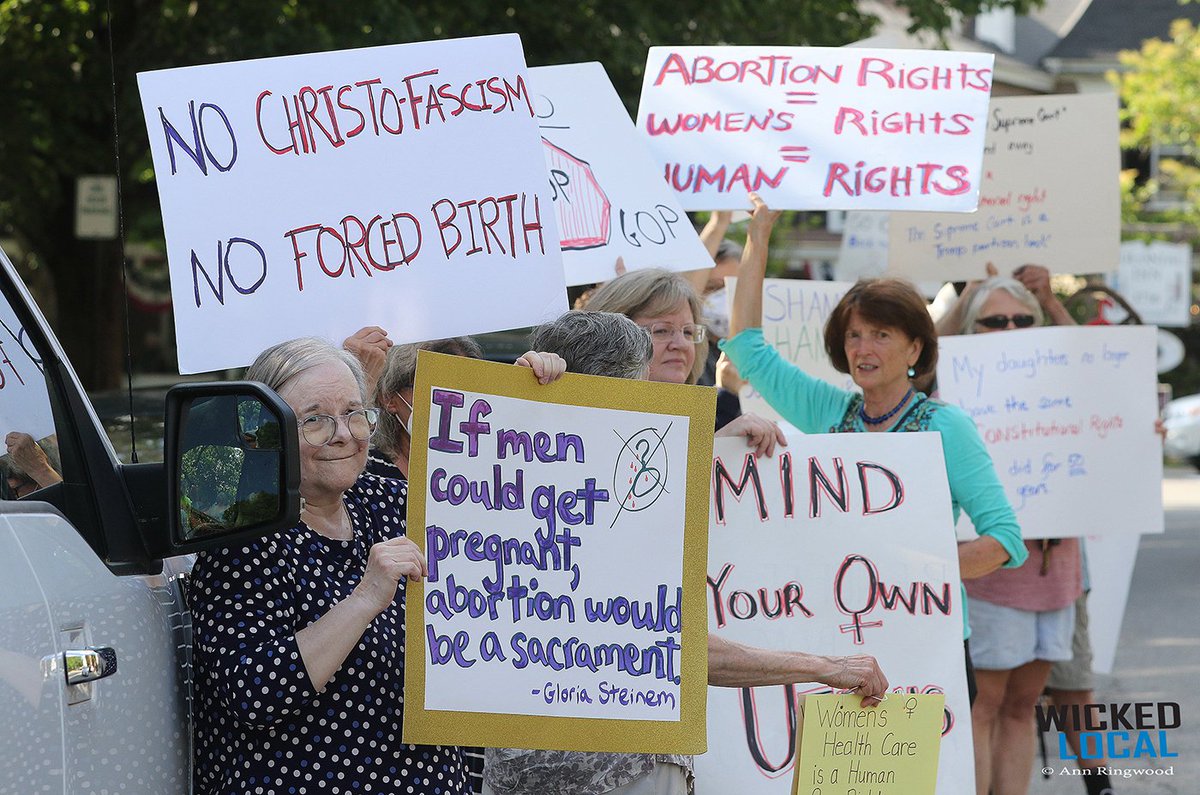 NO CHRISTO-FASCISM
NO FORCED BIRTH
GOP
ABORTION RIGHTS
=
WOMEN'S RIGHTS
=
HUMAN RIGHTS
Supreme Court"
The Supreme Court is a
SHAM
SHAM
My daughters no longer
have the same
CONSTITUTIONAL Rights
did for 50
years
If men
could get
pregnant,
abortion would
be a sacrament.
-Gloria Steinem
MIND
YOUR OWN
Women's ♀
Health Care
is a Human
WICKED
LOCAL
© Ann Ringwood